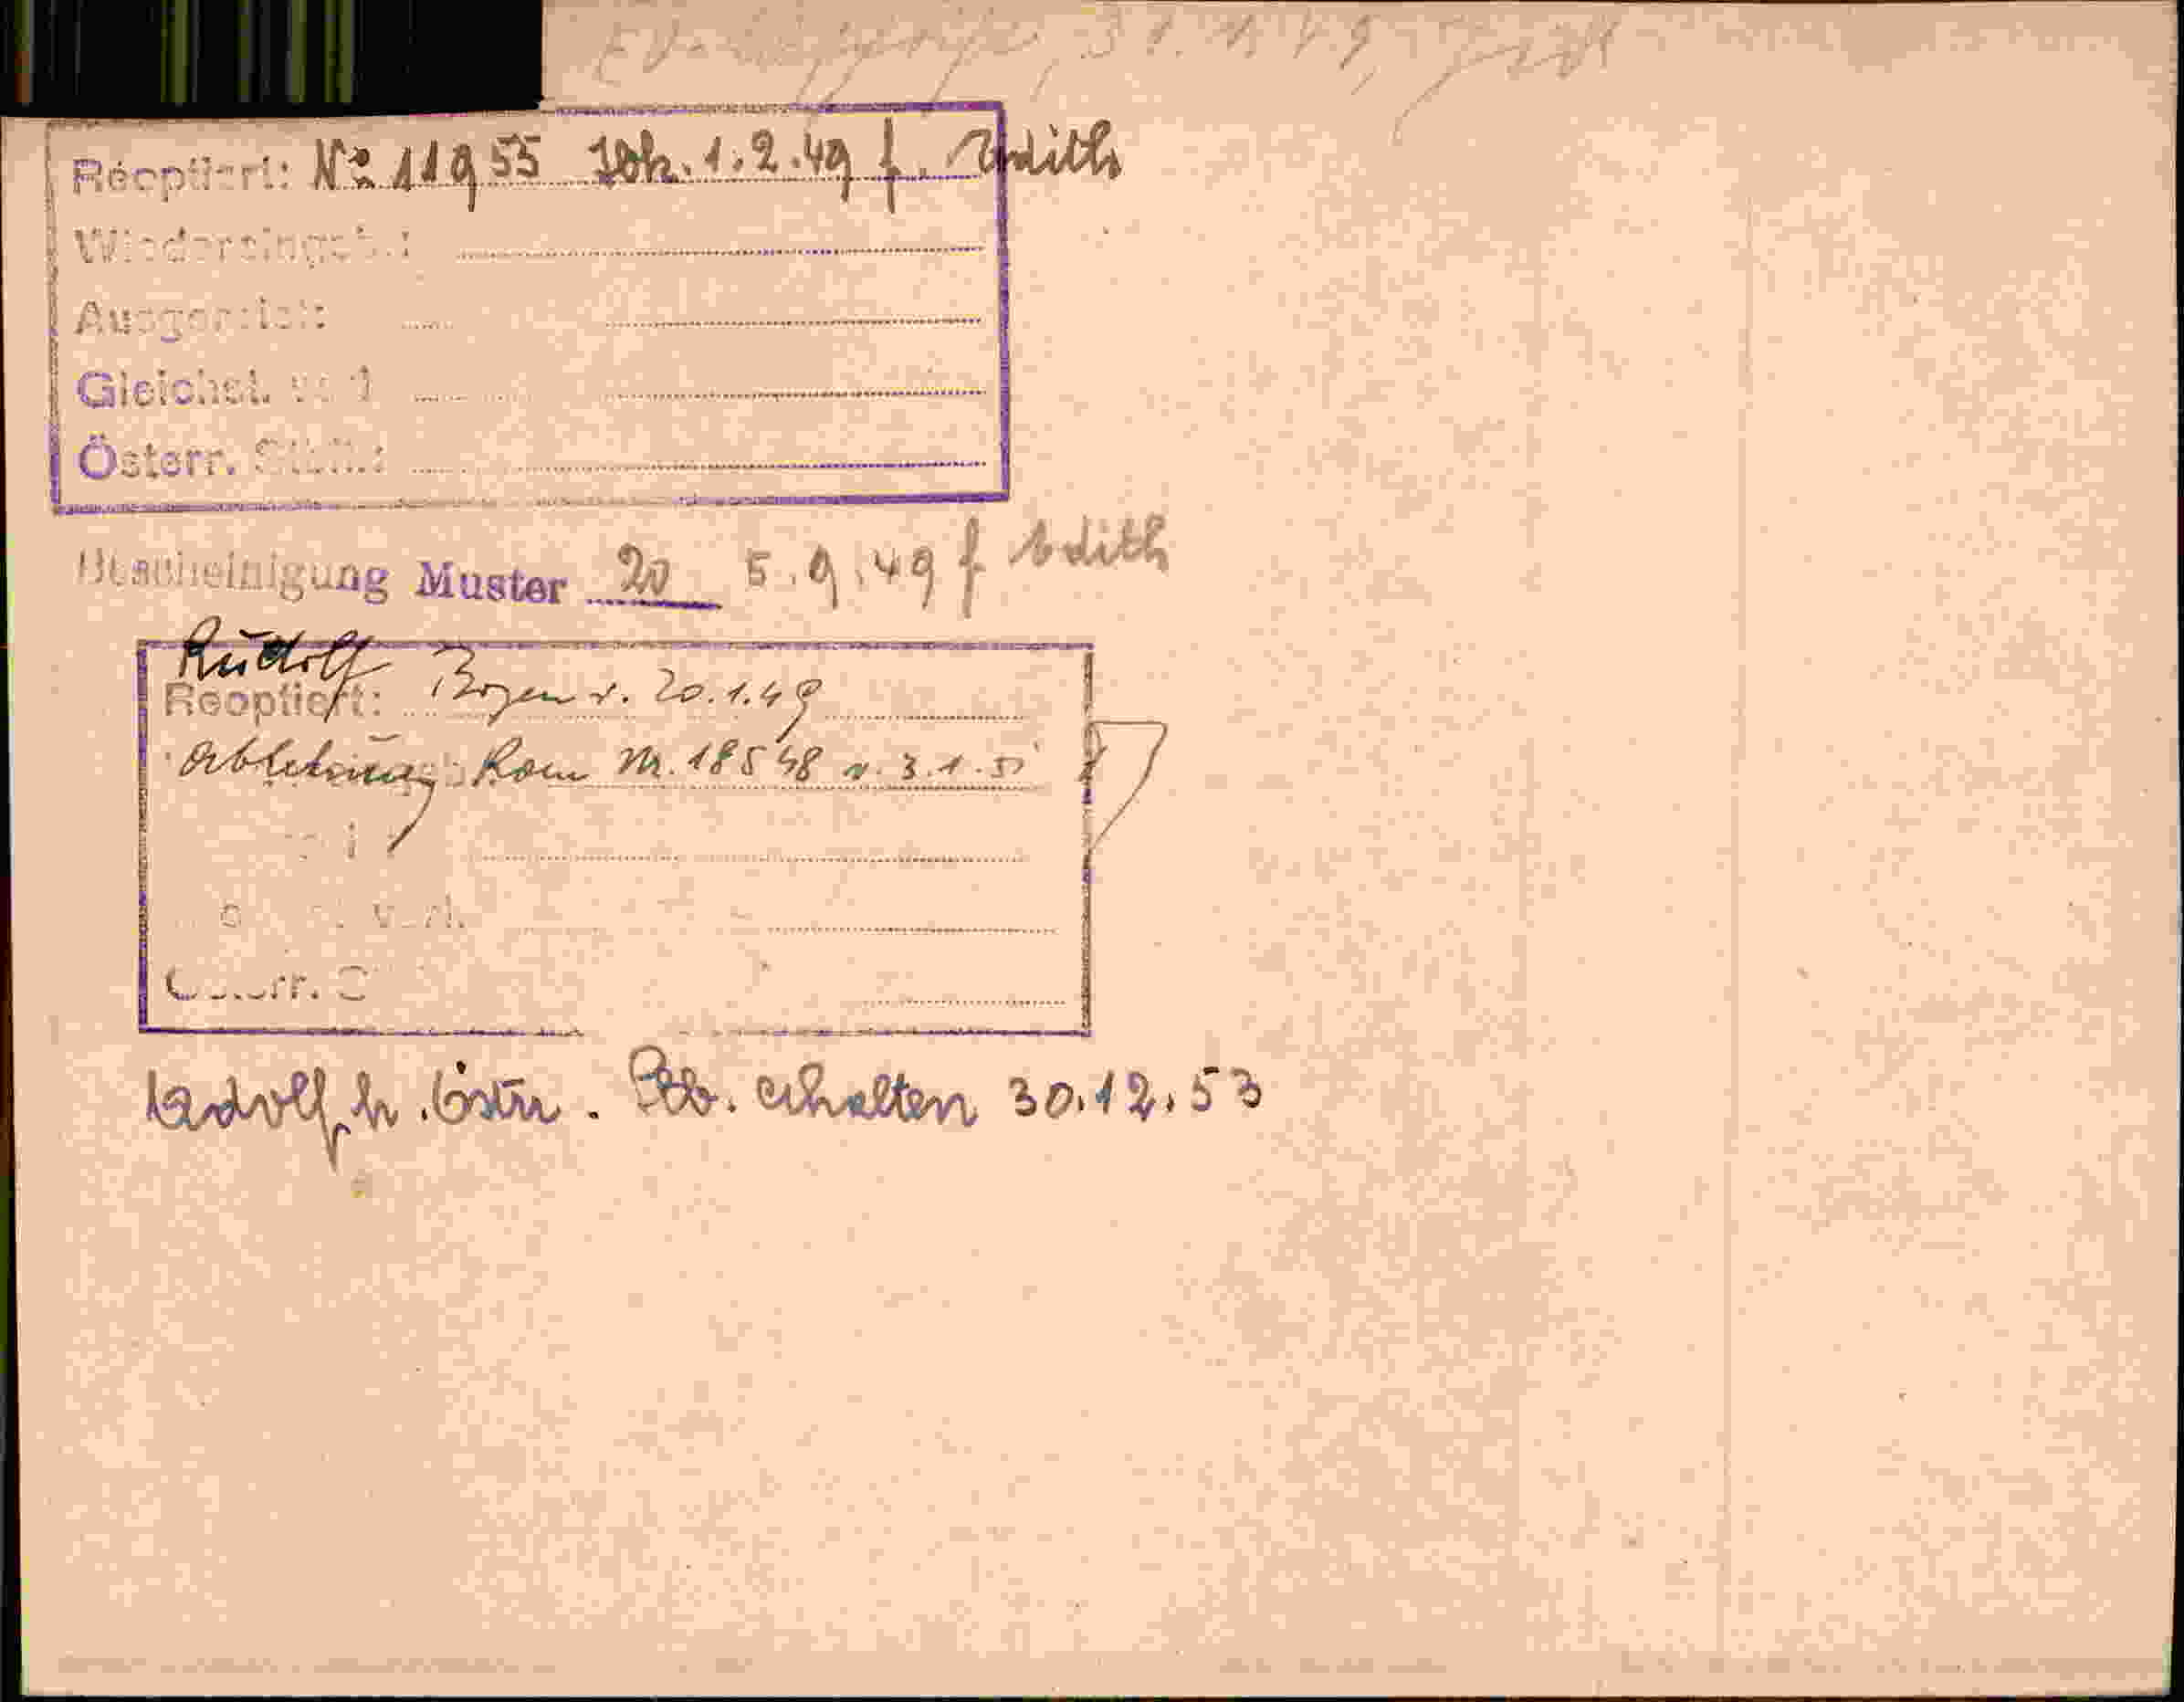 31.1.49,
Reoptiert: No 11955 Ibk. 1.2.49 f. Edith
Wiedereingeb.:
Ausgereist:
Gleichst.
Österr. Stb.:
Bescheinigung Muster 20 5.9.49 f Edith
Rudolf
Reoptiert: Bozen v. 20.1.49
Ablehnung: Rom Nr. 18548 v. 3.1.51
Österr.
h. Östr. Stb. erhalten 30.12.53